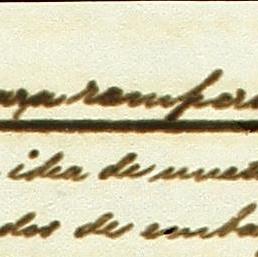 ara romper
idea de nuest
dos de emba